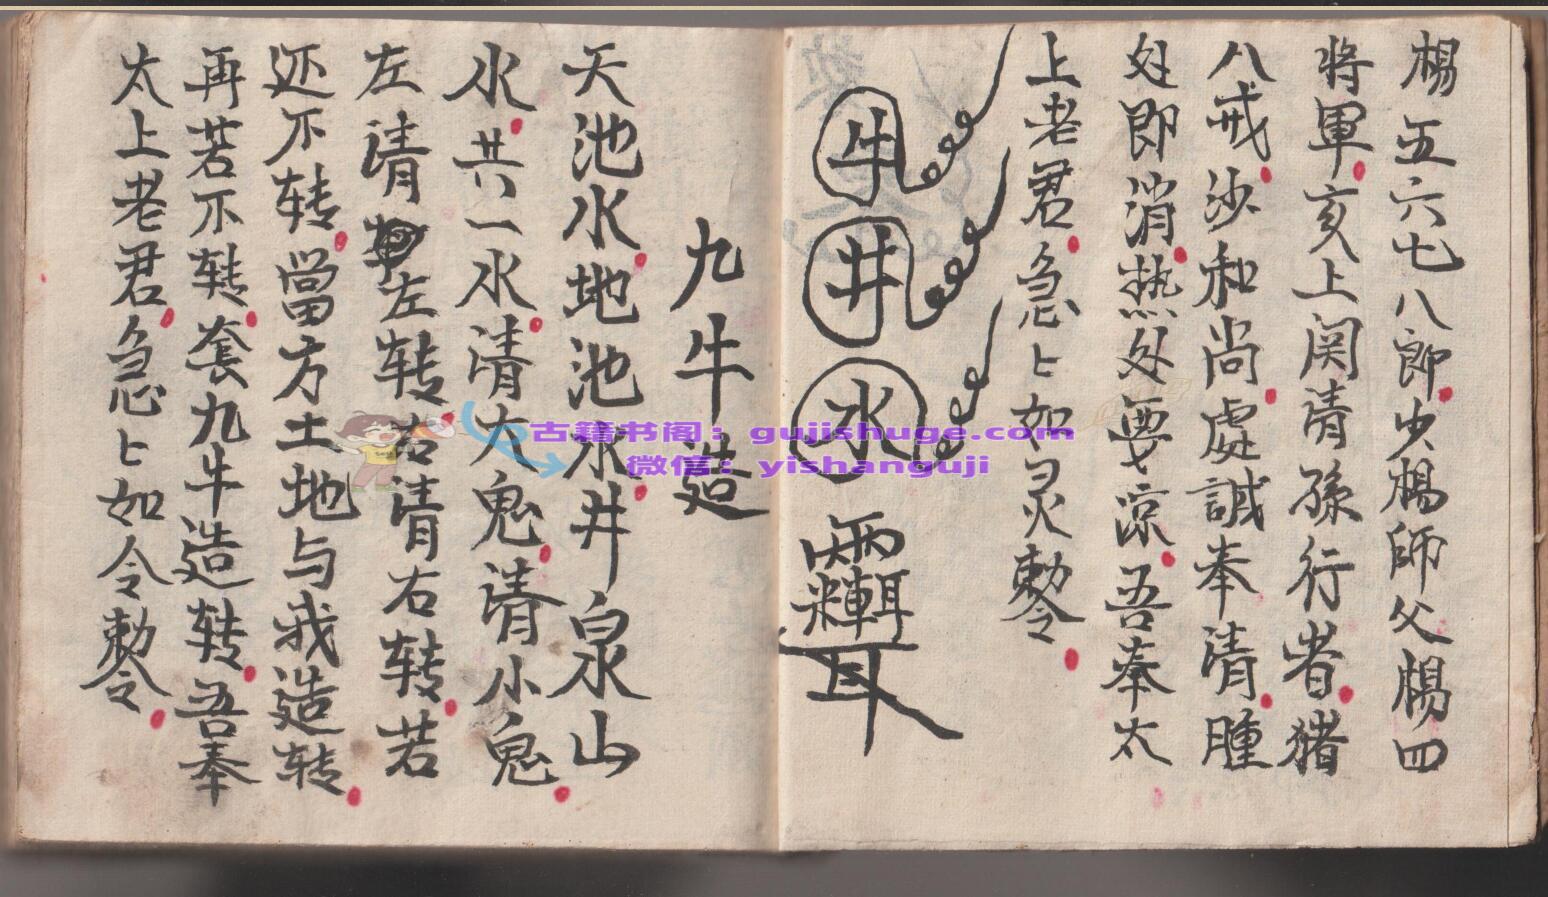 楊五六七八郎少楊師父楊四
將軍亥上関请孫行者猪
八戒沙和尚處誠奉清腫
处即消热处要凉吾奉太
上老君急〻如灵勅令
牛
井
水
九牛造
天池水地池水井泉山
水共一水请大鬼请小鬼
左请左转右请右转若
还不转當方土地与我造转
再若不转套九牛造转吾奉
太上老君急〻如令勅令
古籍书阁：gujishuge.com
微信：yishanguji